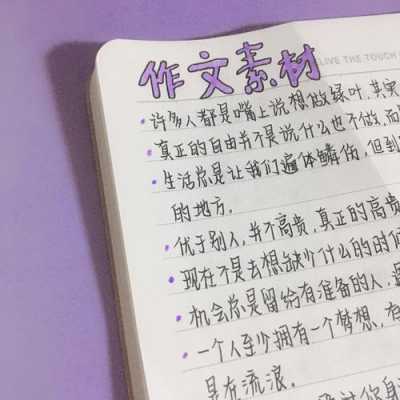 LIVE THE TOUCH
作文素材
·许多人都是嘴上说想做绿叶,其实
·真正的自由并不是说什么也不做,而
·生活总是让我们遍体鳞伤,但到
的地方.
·优于别人,并不高贵,真正的高贵
·现在不是去想缺少什么的时候
·机会总是留给有准备的人,
·一个人至少拥有一个梦想,有
是在流浪.